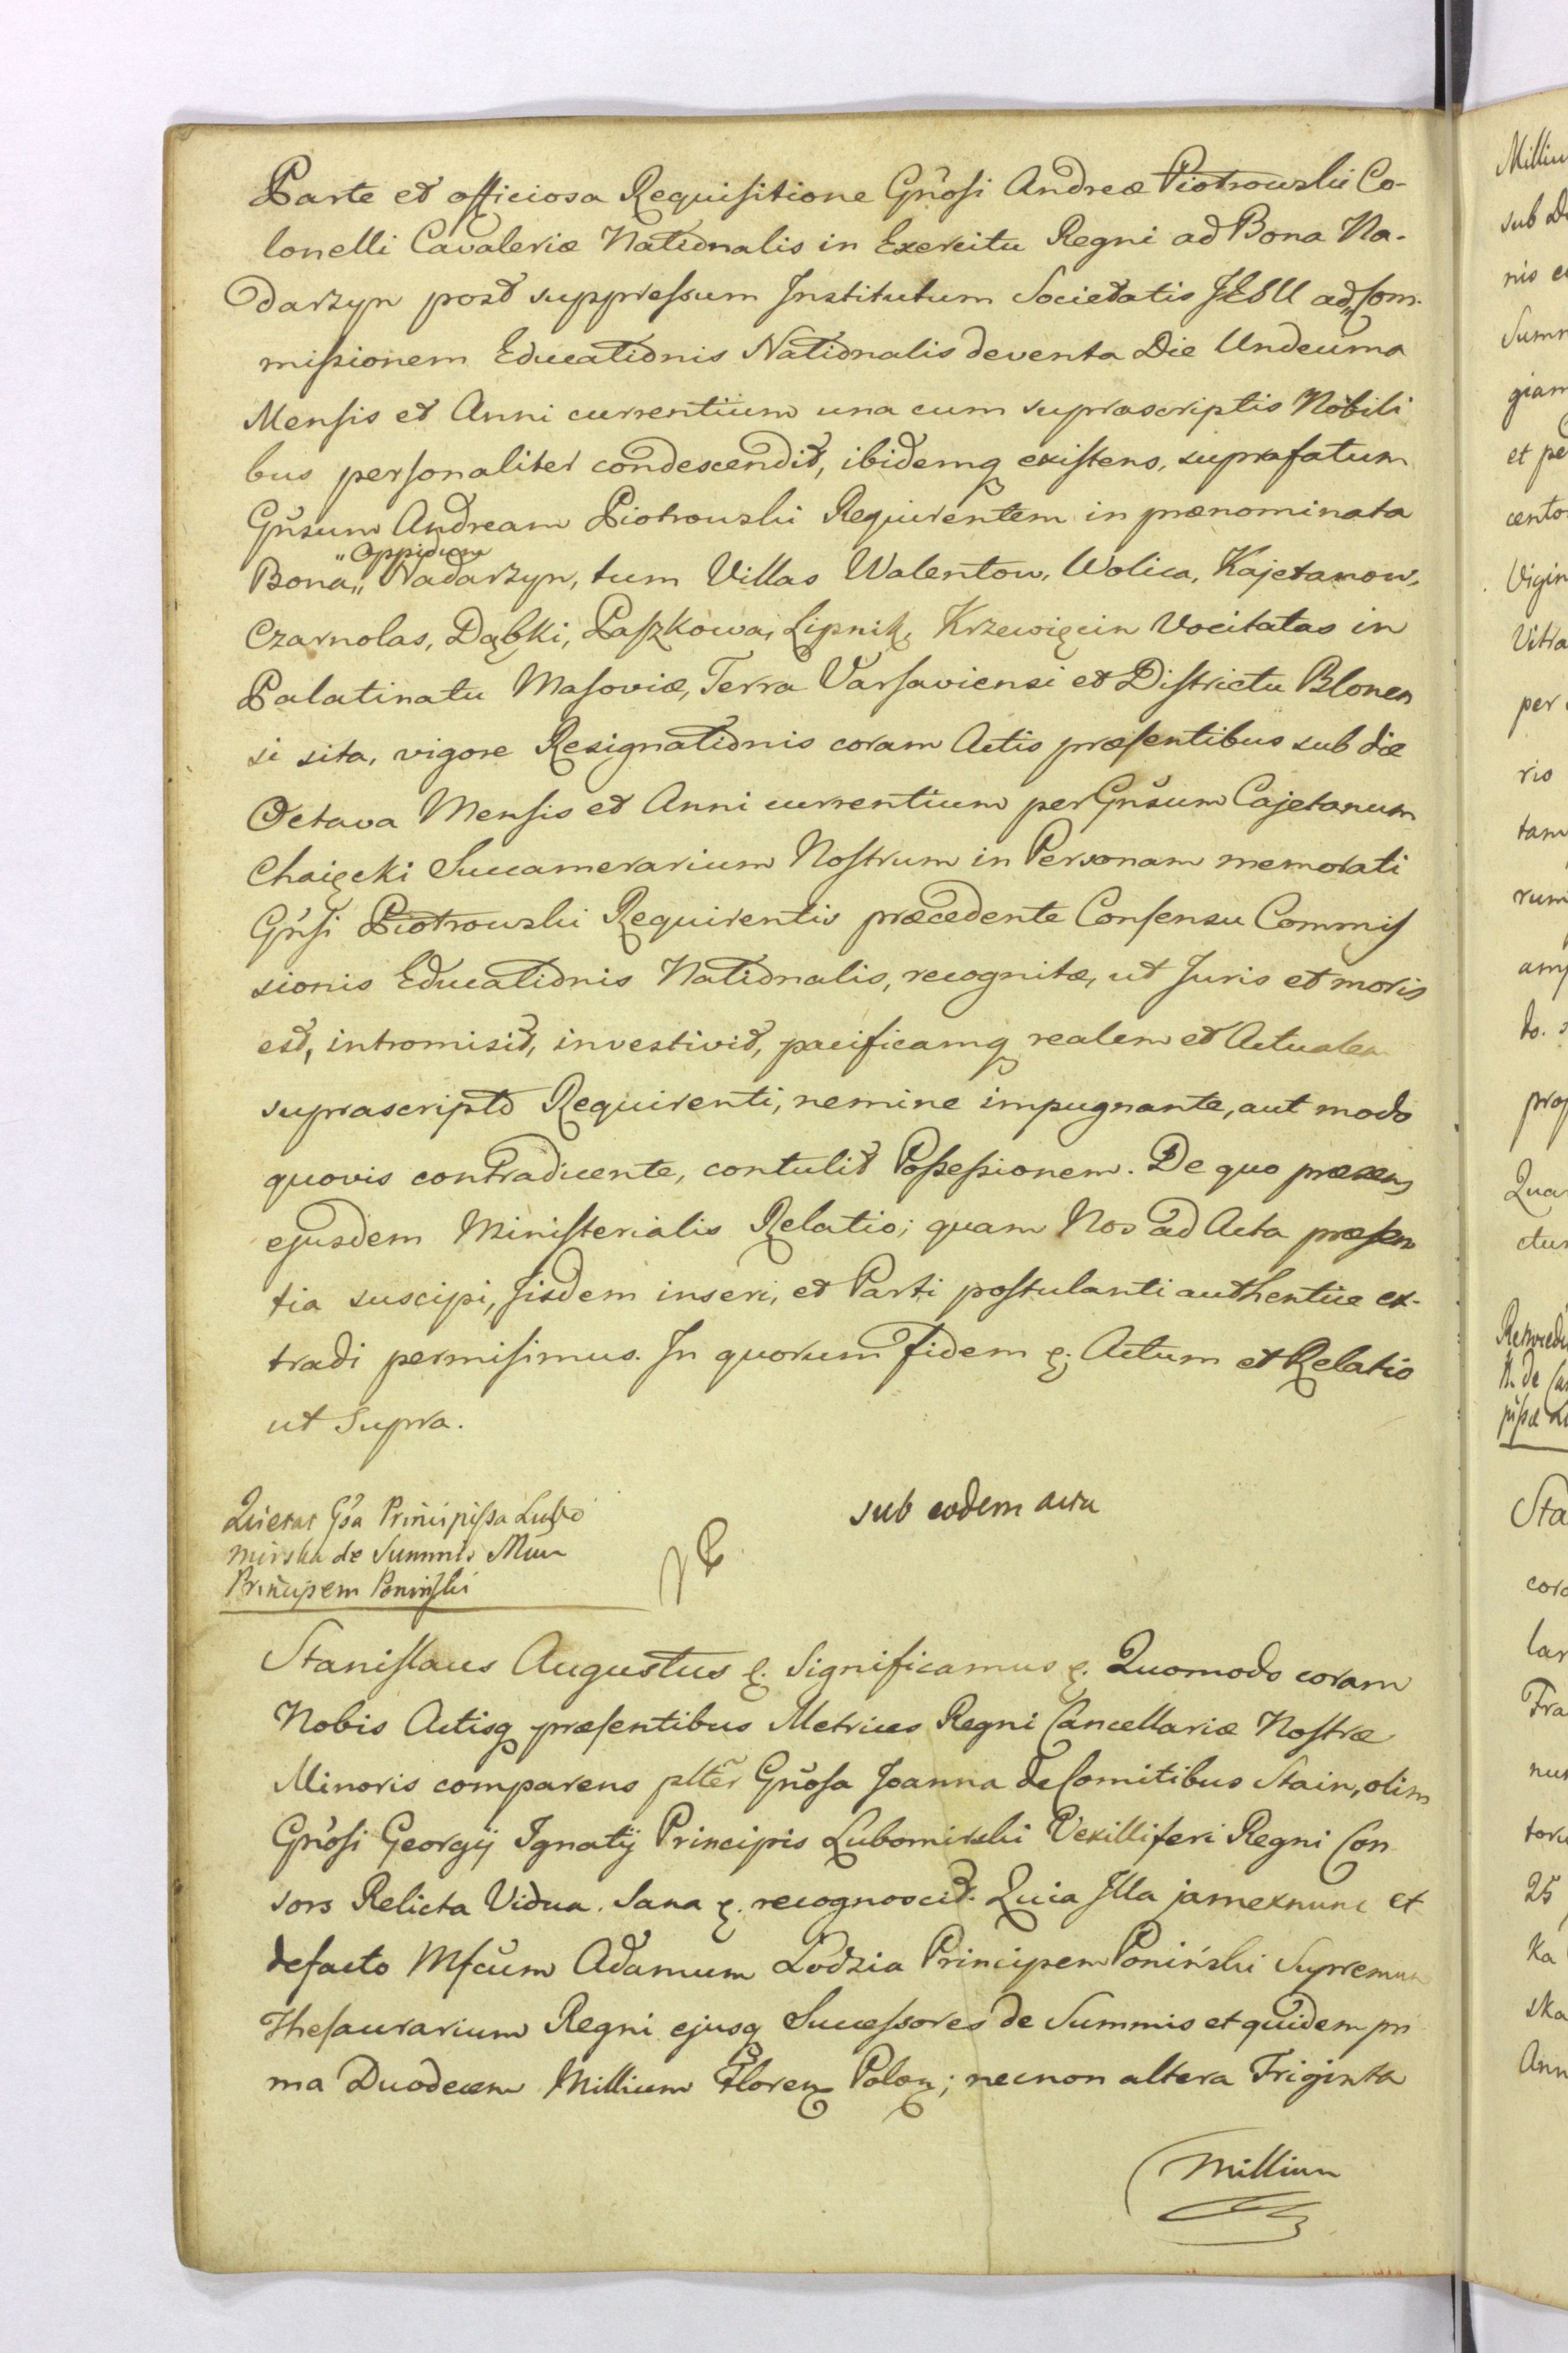 Parte et officiosa Requisitione Gn̄osi Andreæ Piotrowski Co-
lonelli Cavaleriæ Nationalis in Exercitu Regni ad Bona Na-
darzyn post suppressum Institutum Societatis JESU ad Com-
missionem Educationis Nationalis deventa Die Undecima
Mensis et Anni currentium una cum suprascriptis Nobili
bus personaliter condescendit, ibidemq existens, suprafatum
Gn̄sum Andream Piotrowski Requirentem in prænominata
"oppidum
Bona,, Nadarzyn, tum Villas Walentow, Wolica, Kajetanow,
Czarnolas, Dąbki, Paszkowa, Lipnik, Krzewięcin Vocitatas in
Palatinatu Masoviæ, Terra Varsaviensi et Districtu Blonen
si sita, vigore Resignationis coram Actis præsentibus sub die
Octava Mensis et Anni currentium per Gn̄sum Cajetanum
Chaięcki Succamerarium Nostrum in Personam memorati
Gn̄si Piotrowski Requirentis præcedente Consensu Commis
sionis Educationis Nationalis, recognitæ, ut Juris et moris
est, intromisit, investivit, pacificamq realem et Actualem
suprascripto Requirenti, nemine impugnante, aut modo
quovis contradicente, contulit Possessionem. De quo præsens
ejusdem Ministerialis Relatio; quam Nos ad Acta præsen
tia suscipi, Iisdem inseri, et Parti postulanti authentice ex-
tradi permisimus. In quorum fidem &. Actum et Relatio
ut supra.
Quietat Gsa Principissa Lubo
mirska de Summis Mun
Principem Poniński
sub eodem actu
Stanislaus Augustus &. Significamus &. Quomodo coram
Nobis Actisq præsentibus Metrices Regni Cancellariæ Nostræ
Minoris comparens pltēr Gn̄osa Joanna de Comitibus Stain, olim
Gn̄osi Georgij Ignatij Principis Lubomirski Vexilliferi Regni Con
sors Relicta Vidua. Sana &. recognoscit. Quia Illa jam exnunc et
defacto Mfcum Adamum Lodzia Principem Poniński Supremum
Thesaurarium Regni ejusq Successores de Summis et quidem pri
ma Duodecem Millium Floren Polon; necnon altera Triginta
Millium